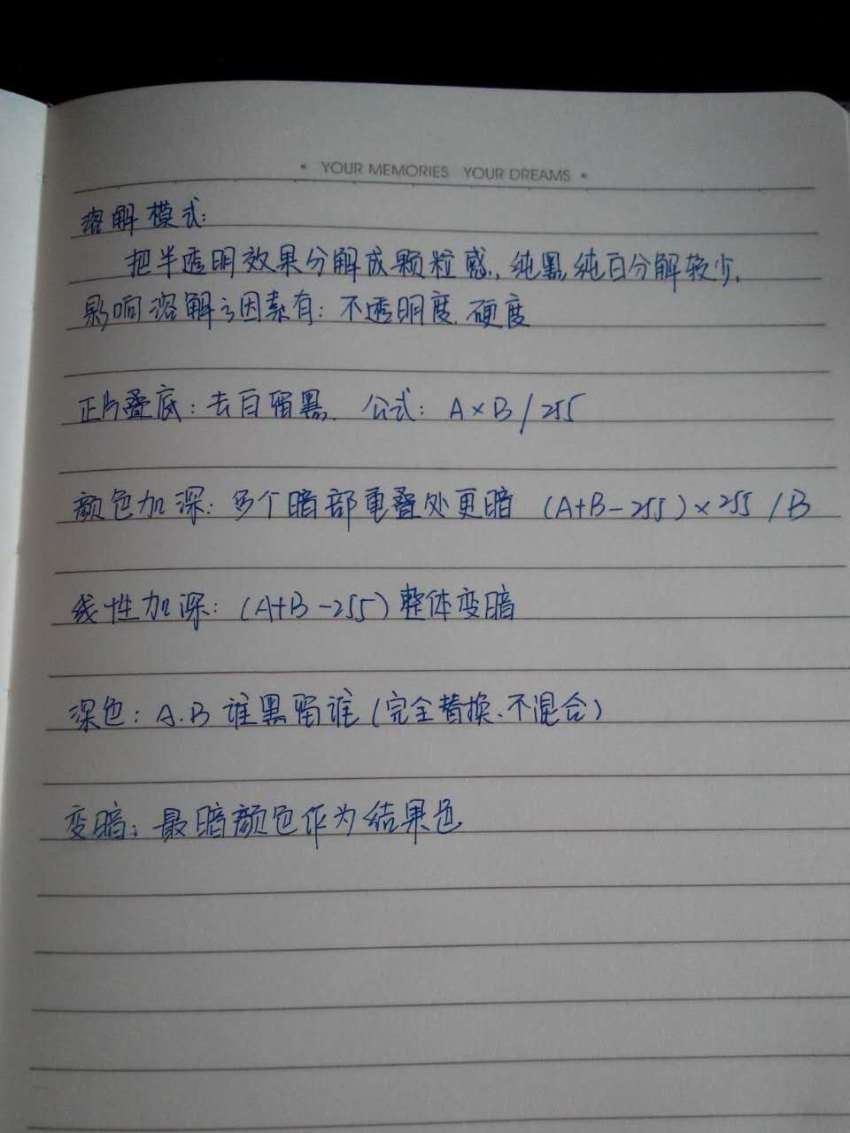 • YOUR MEMORIES YOUR DREAMS •
溶解模式:
把半透明效果分解成颗粒感,纯黑纯白分解较少,
影响溶解之因素有:不透明度.硬度
正片叠底:去白留黑. 公式: A×B/255
颜色加深:多个暗部重叠处更暗 (A+B-255)×255/B
线性加深:(A+B-255)整体变暗
深色:A.B谁黑留谁(完全替换、不混合)
变暗:最暗颜色作为结果色